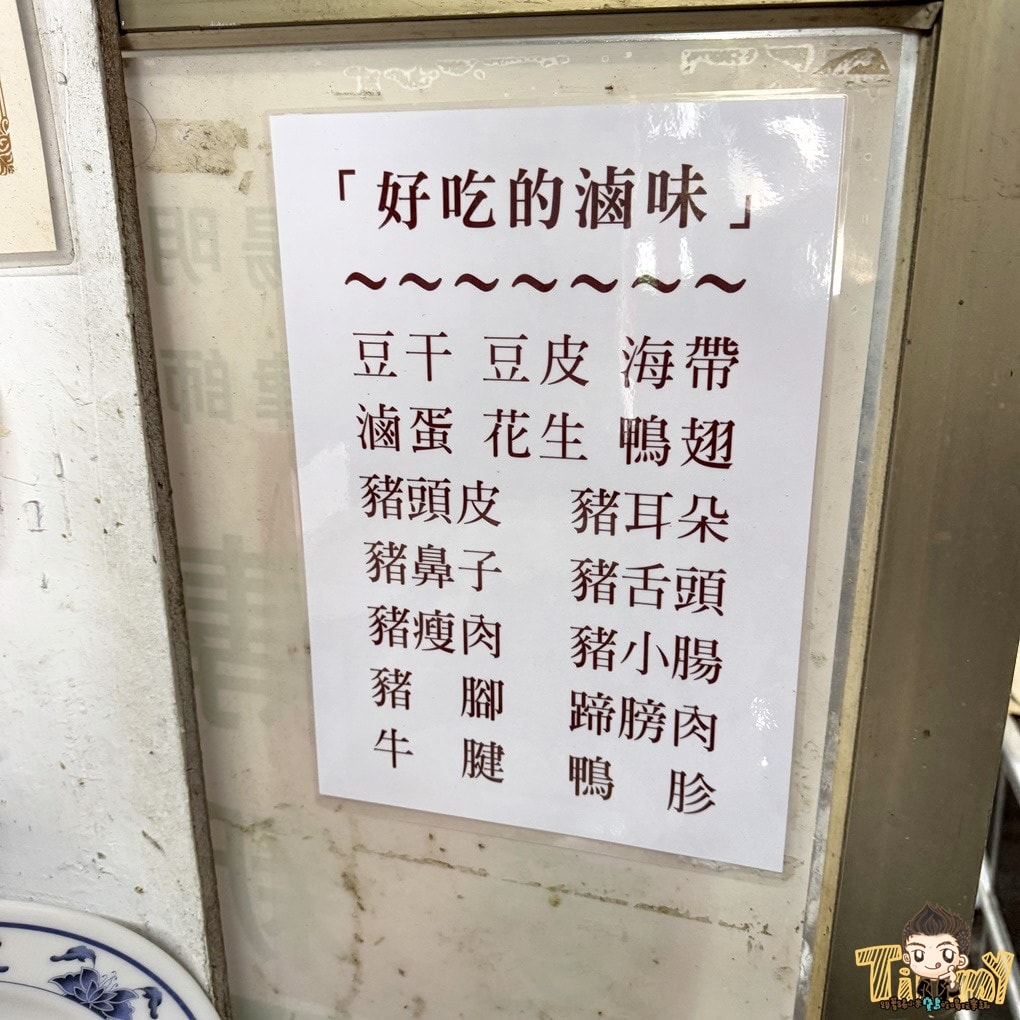 「好吃的滷味」
～～～～～～～
豆干 豆皮 海帶
滷蛋 花生 鴨翅
豬頭皮 豬耳朵
豬鼻子 豬舌頭
豬瘦肉 豬小腸
豬腳 蹄膀肉
牛腱 鴨胗